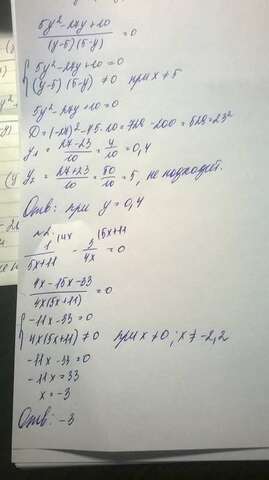 5y² - 27y + 10
(y-5)(5-y) = 0
5y² - 27y + 10 = 0
(y-5)(5-y) ≠ 0 при x ≠ 5
5y² - 27y + 10 = 0
D = (-27)² - 4·5·10 = 729 - 200 = 529 = 23²
y₁ = (27-23)/10 = 4/10 = 0,4
y₂ = (27+23)/10 = 50/10 = 5, не подходит.
Отв: при y = 0,4
№2.
1/(5x+11) - 3/4x = 0
(4x - 15x - 33)/(4x(5x+11)) = 0
-11x - 33 = 0
4x(5x+11) ≠ 0 при x ≠ 0; x ≠ -2,2
-11x - 33 = 0
-11x = 33
x = -3
Отв: -3